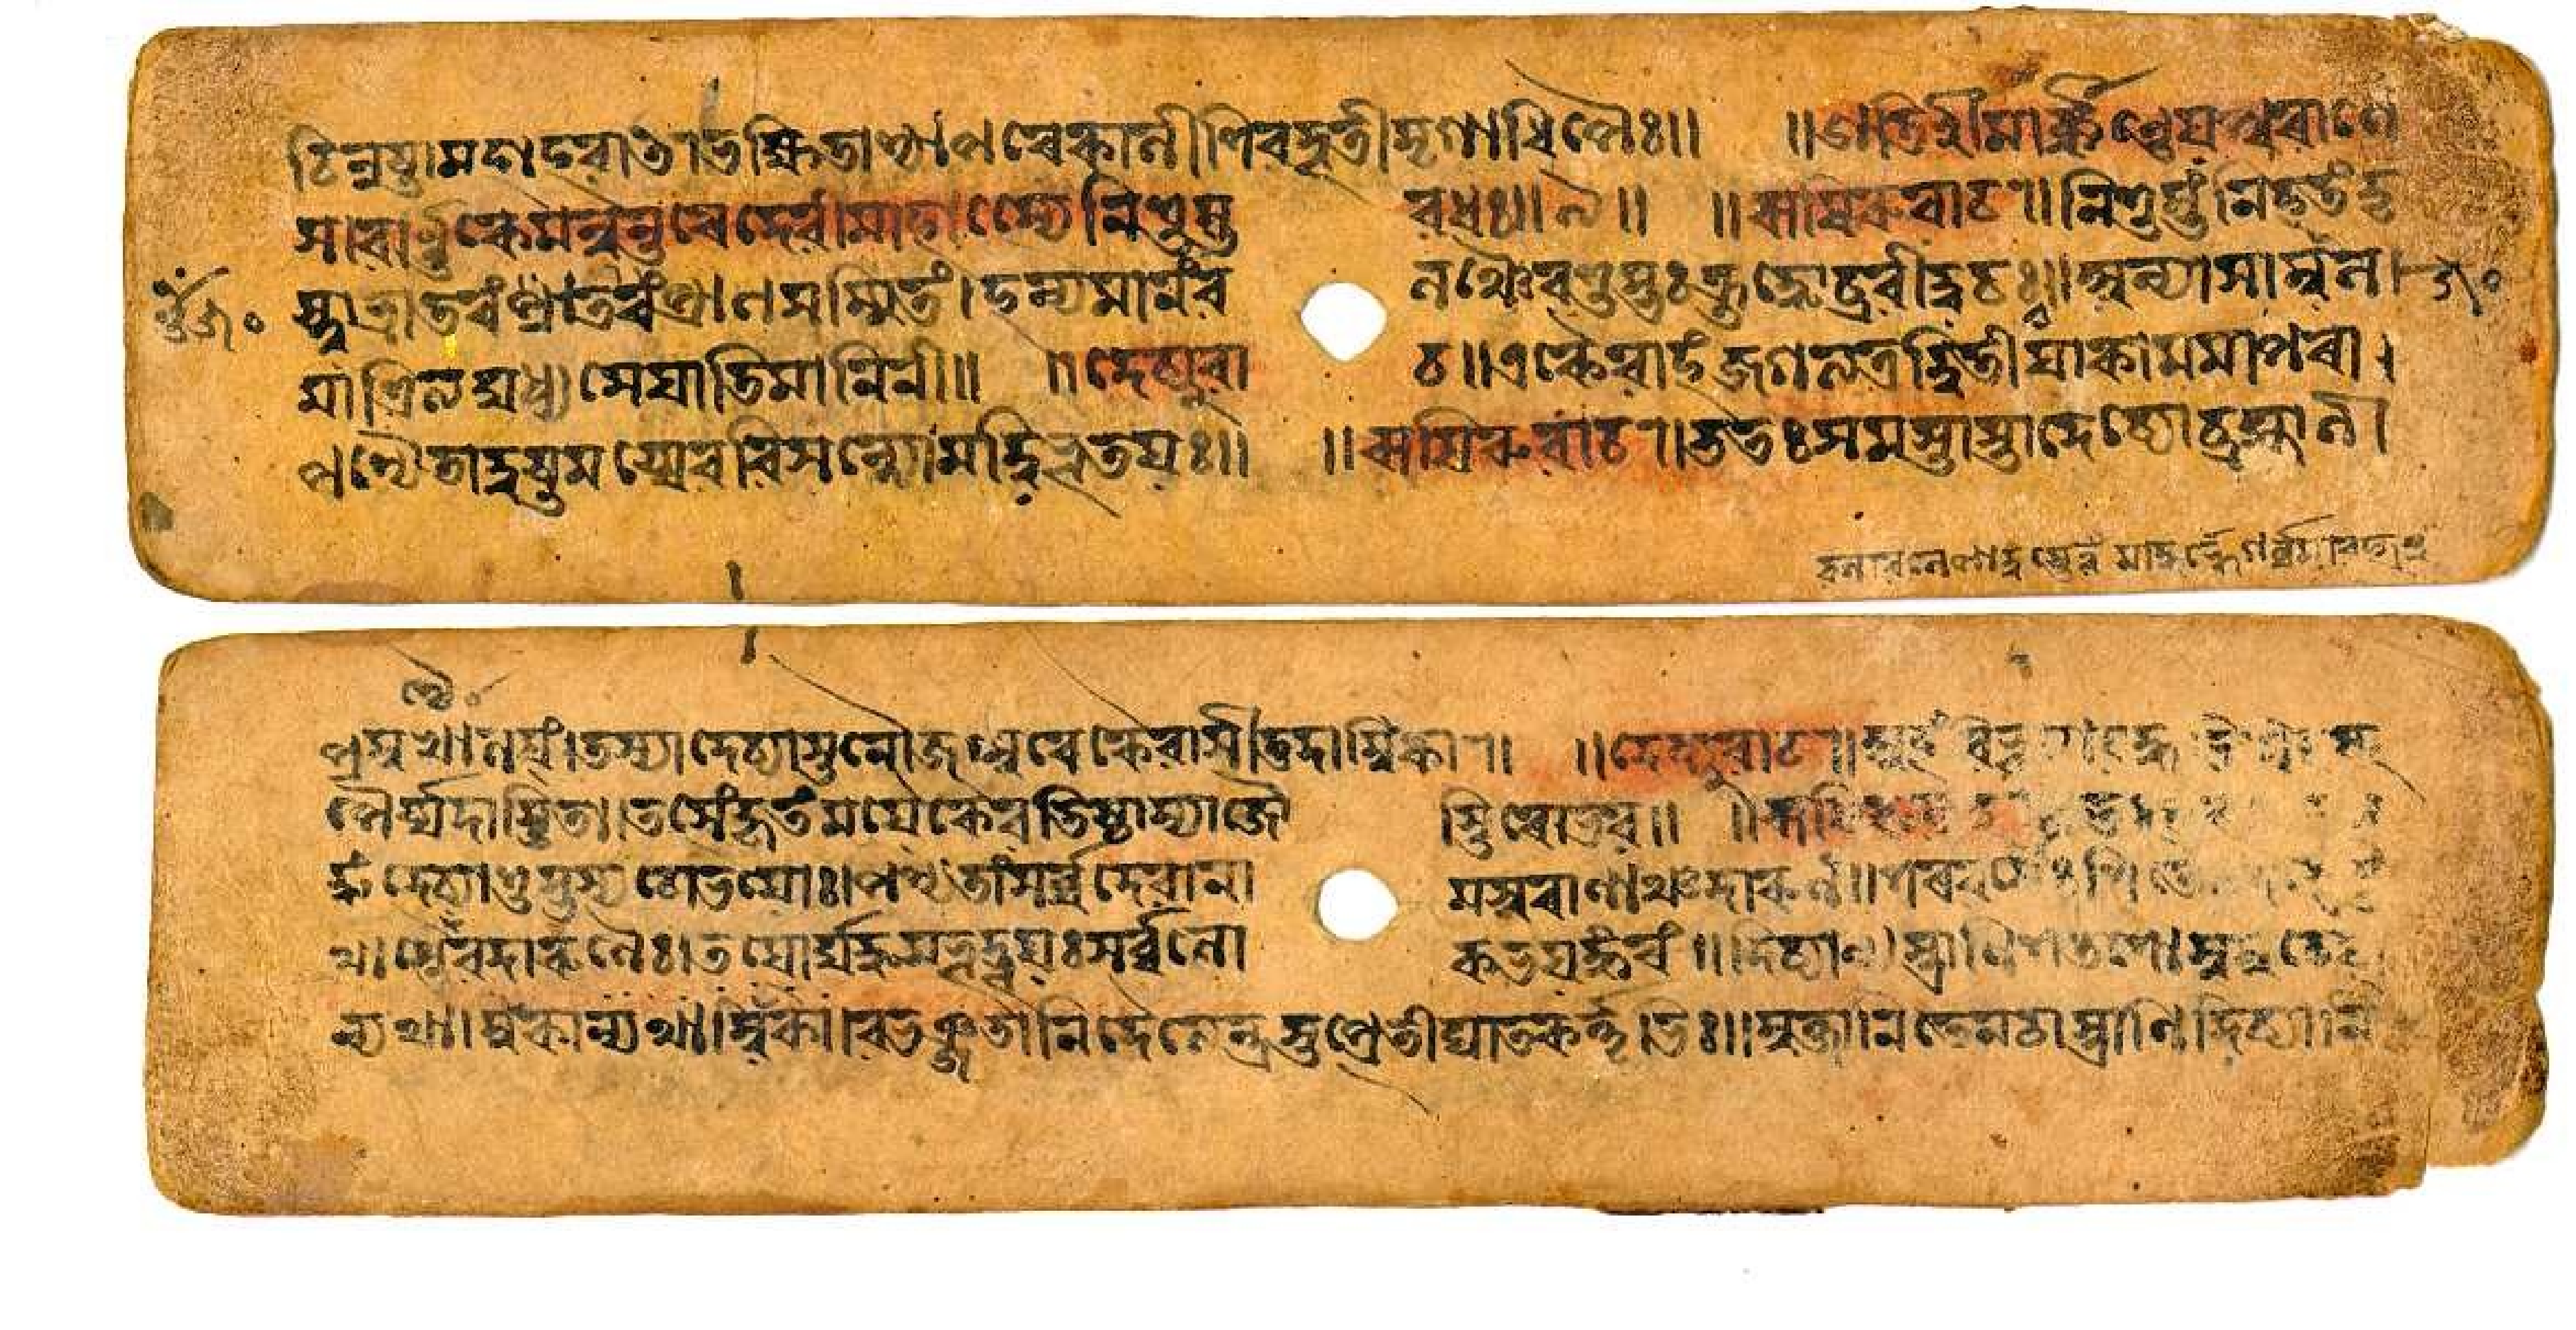 চিন্নষ্টামহাহবাৎ।ভক্ষিতাশ্চাপৰেকালীশিবদূতীমৃগাধিপৈঃ॥ ॥ইতিশ্রীমার্কণ্ডেয়পুৰাণে
সাবর্ণিকেমন্বন্তৰেদেবীমাহাত্ম্যেনিশুম্ভবধঃ॥৯॥ ॥ঋষিৰুবাচ॥নিশুম্ভংনিহতংদৃ
ষ্ট্বাভ্রাতৰংপ্রাণসম্মিতং।হন্যমানংবলঞ্চৈবশুম্ভঃক্রুদ্ধোব্রবীদ্বচঃ॥অন্যাসাম্বল
মাশ্রিত্যযুধ্যসেযাতিমানিনী॥ ॥দেব্যুবাচ॥একৈবাহংজগত্যত্রদ্বিতীয়াকামমাপৰা।
পশ্যৈতাদুষ্টময্যেববিশন্ত্যোমদ্বিভূতয়ঃ॥ ॥ঋষিৰুবাচ॥ততঃসমস্তাস্তাদেব্যোব্রহ্মাণী
প্রমুখালয়ং।তস্যাদেব্যাস্তনৌজগ্মুৰেকৈবাসীত্তদাম্বিকা॥ ॥দেব্যুবাচ॥অহংবিভূত্যা
পৈর্য্যদাস্থিতা।তৎসংহৃতংময়ৈকৈবতিষ্ঠাম্যাজৌস্থিৰোভব॥ ॥ঋষিৰুবাচ
দ্ধংদেব্যাঃশুম্ভস্যচোভয়োঃ।পশ্যতাংসর্ব্বদেবানামসুৰাণাঞ্চদাৰুণং॥শৰবর্ষৈঃশিতৈঃ
থাস্ত্রৈশ্চৈবদাৰুণৈঃ।তয়োর্য্যুদ্ধমভূদ্ভূয়ঃসর্ব্বলোকভয়ঙ্কৰং॥দিব্যান্যস্ত্রাণিশতশোমুমুচে
ন্যথাম্বিকা।বভঞ্জতানিদৈত্যেন্দ্রস্তৎপ্রতীঘাতকর্তৃভিঃ॥মুক্তানিতেনচাস্ত্রাণিদিব্যানি